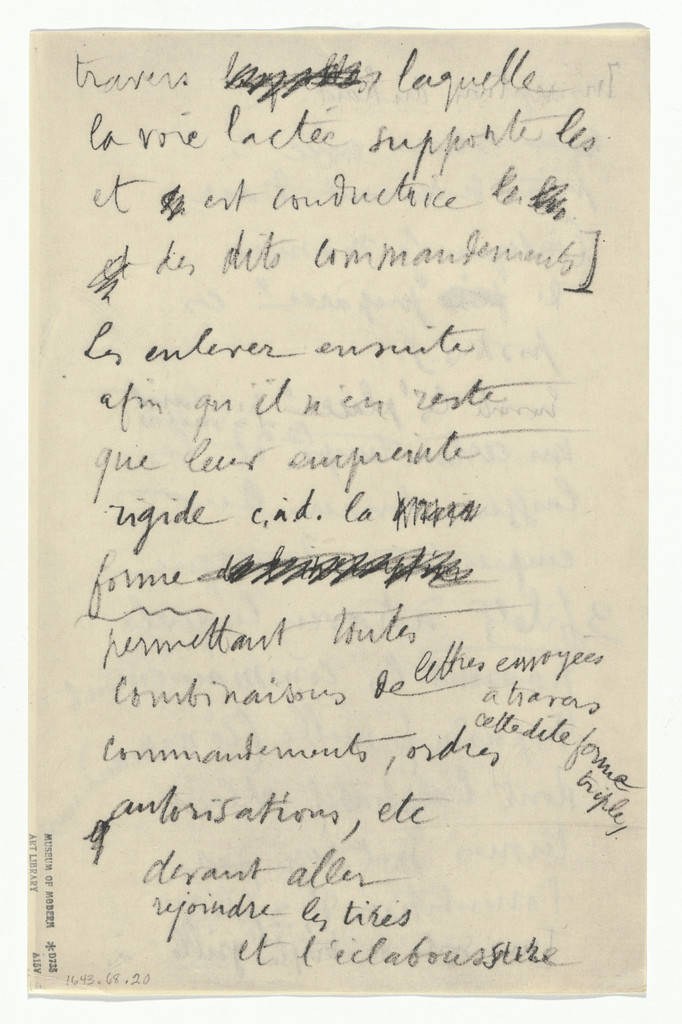 travers laquelle
la voie lactée supporte les
et est conductrice
des dits commandements]
Les enlever ensuite
afin qu'il n'en reste
que leur empreinte
rigide c.à.d. la
forme
permettant toutes
combinaisons de lettres envoyées
à travers
cette dite forme
triple,
commandements, ordres,
autorisations, etc
devant aller
rejoindre les tirés
et l'éclaboussure
MUSEUM OF MODERN
ART LIBRARY
*D735
A15V
1643.68.20